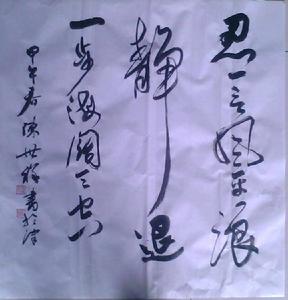 忍一言风平浪
静退
一步海阔天空
甲午春陈世书於津